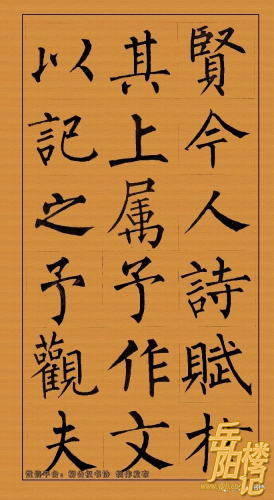 賢今人詩賦於
其上属予作文
以記之予觀夫
岳阳楼记